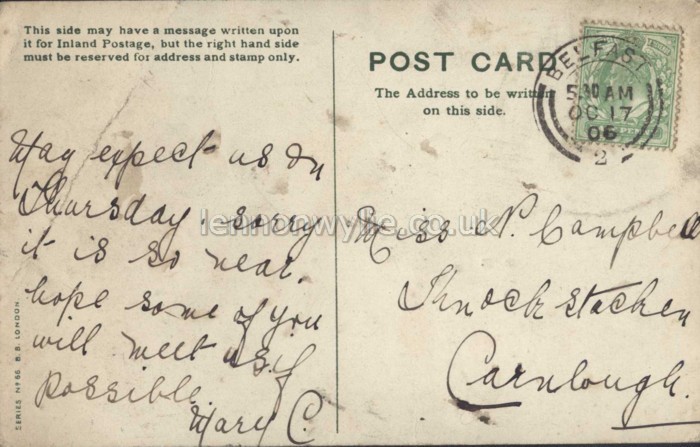 This side may have a message written upon
it for Inland Postage, but the right hand side
must be reserved for address and stamp only.
May expect us on
Thursday. sorry
it is so near.
hope some of you
will meet us if
possible.
Mary C.
SERIES No 66. B.B. LONDON.
POST CARD
The Address to be written
on this side.
BELFAST
5 30 AM
OC 17
06
2
Miss N. Campbell
Knockstacken
Carnlough.
lennonwylie.co.uk